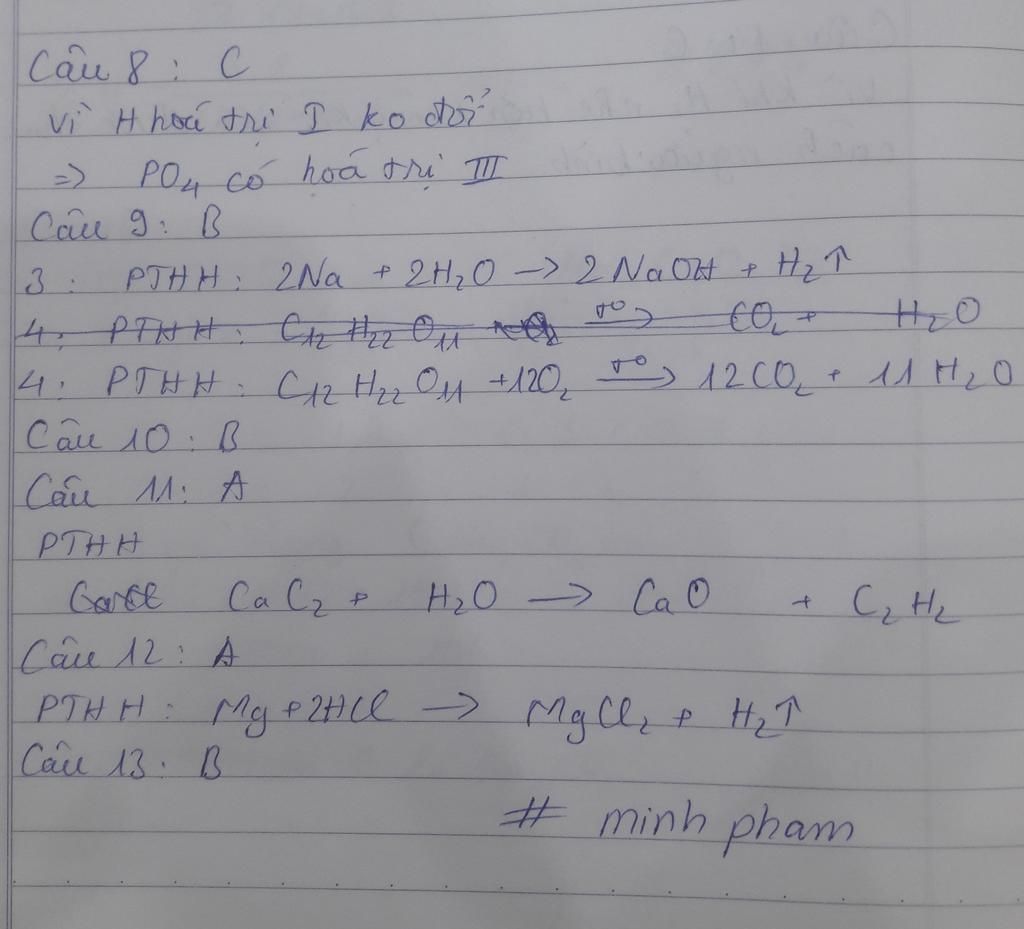 Câu 8 : C
vì H hoá trị I ko đổi
=> PO₄ có hoá trị III
Câu 9 : B
3 : PTHH : 2Na + 2H₂O → 2NaOH + H₂↑
4 : PTHH : C₁₂H₂₂O₁₁ +O₂ —t°→ CO₂ + H₂O
4 : PTHH : C₁₂H₂₂O₁₁ +12O₂ —t°→ 12CO₂ + 11H₂O
Câu 10 : B
Câu 11 : A
PTHH
CaC₂ + H₂O → CaO + C₂H₂
Câu 12 : A
PTHH : Mg + 2HCl → MgCl₂ + H₂↑
Câu 13 : B
# minh pham